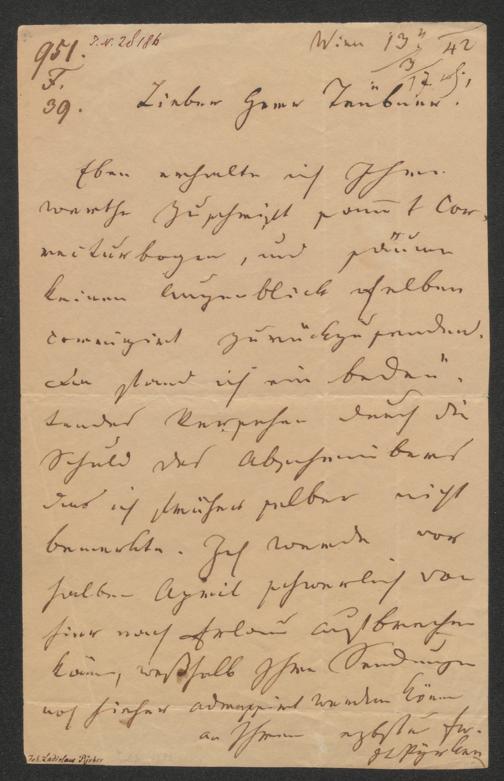 951. I. N. 28186 Wien 13. 42
F.
39. 3
17
Lieber Herr Teübner.
Eben erhalte ich Ihre
werthe Zuschrift sam̄t Cor-
recturbogen, und säume
keinen Augenblick selben
corrigirt zurückzusenden.
Da fand ich ein bedeu-
tendes Versehen durch die
Schuld des Abschreibers
das ich früher selber nicht
bemerkte. Ich werde vor
halben April schwerlich von
hier nach Erlau aufbrechen
können, weßhalb Ihre Sendungen
noch hieher adressirt werden können
an Ihren
Joh. Ladislaus Pyrker